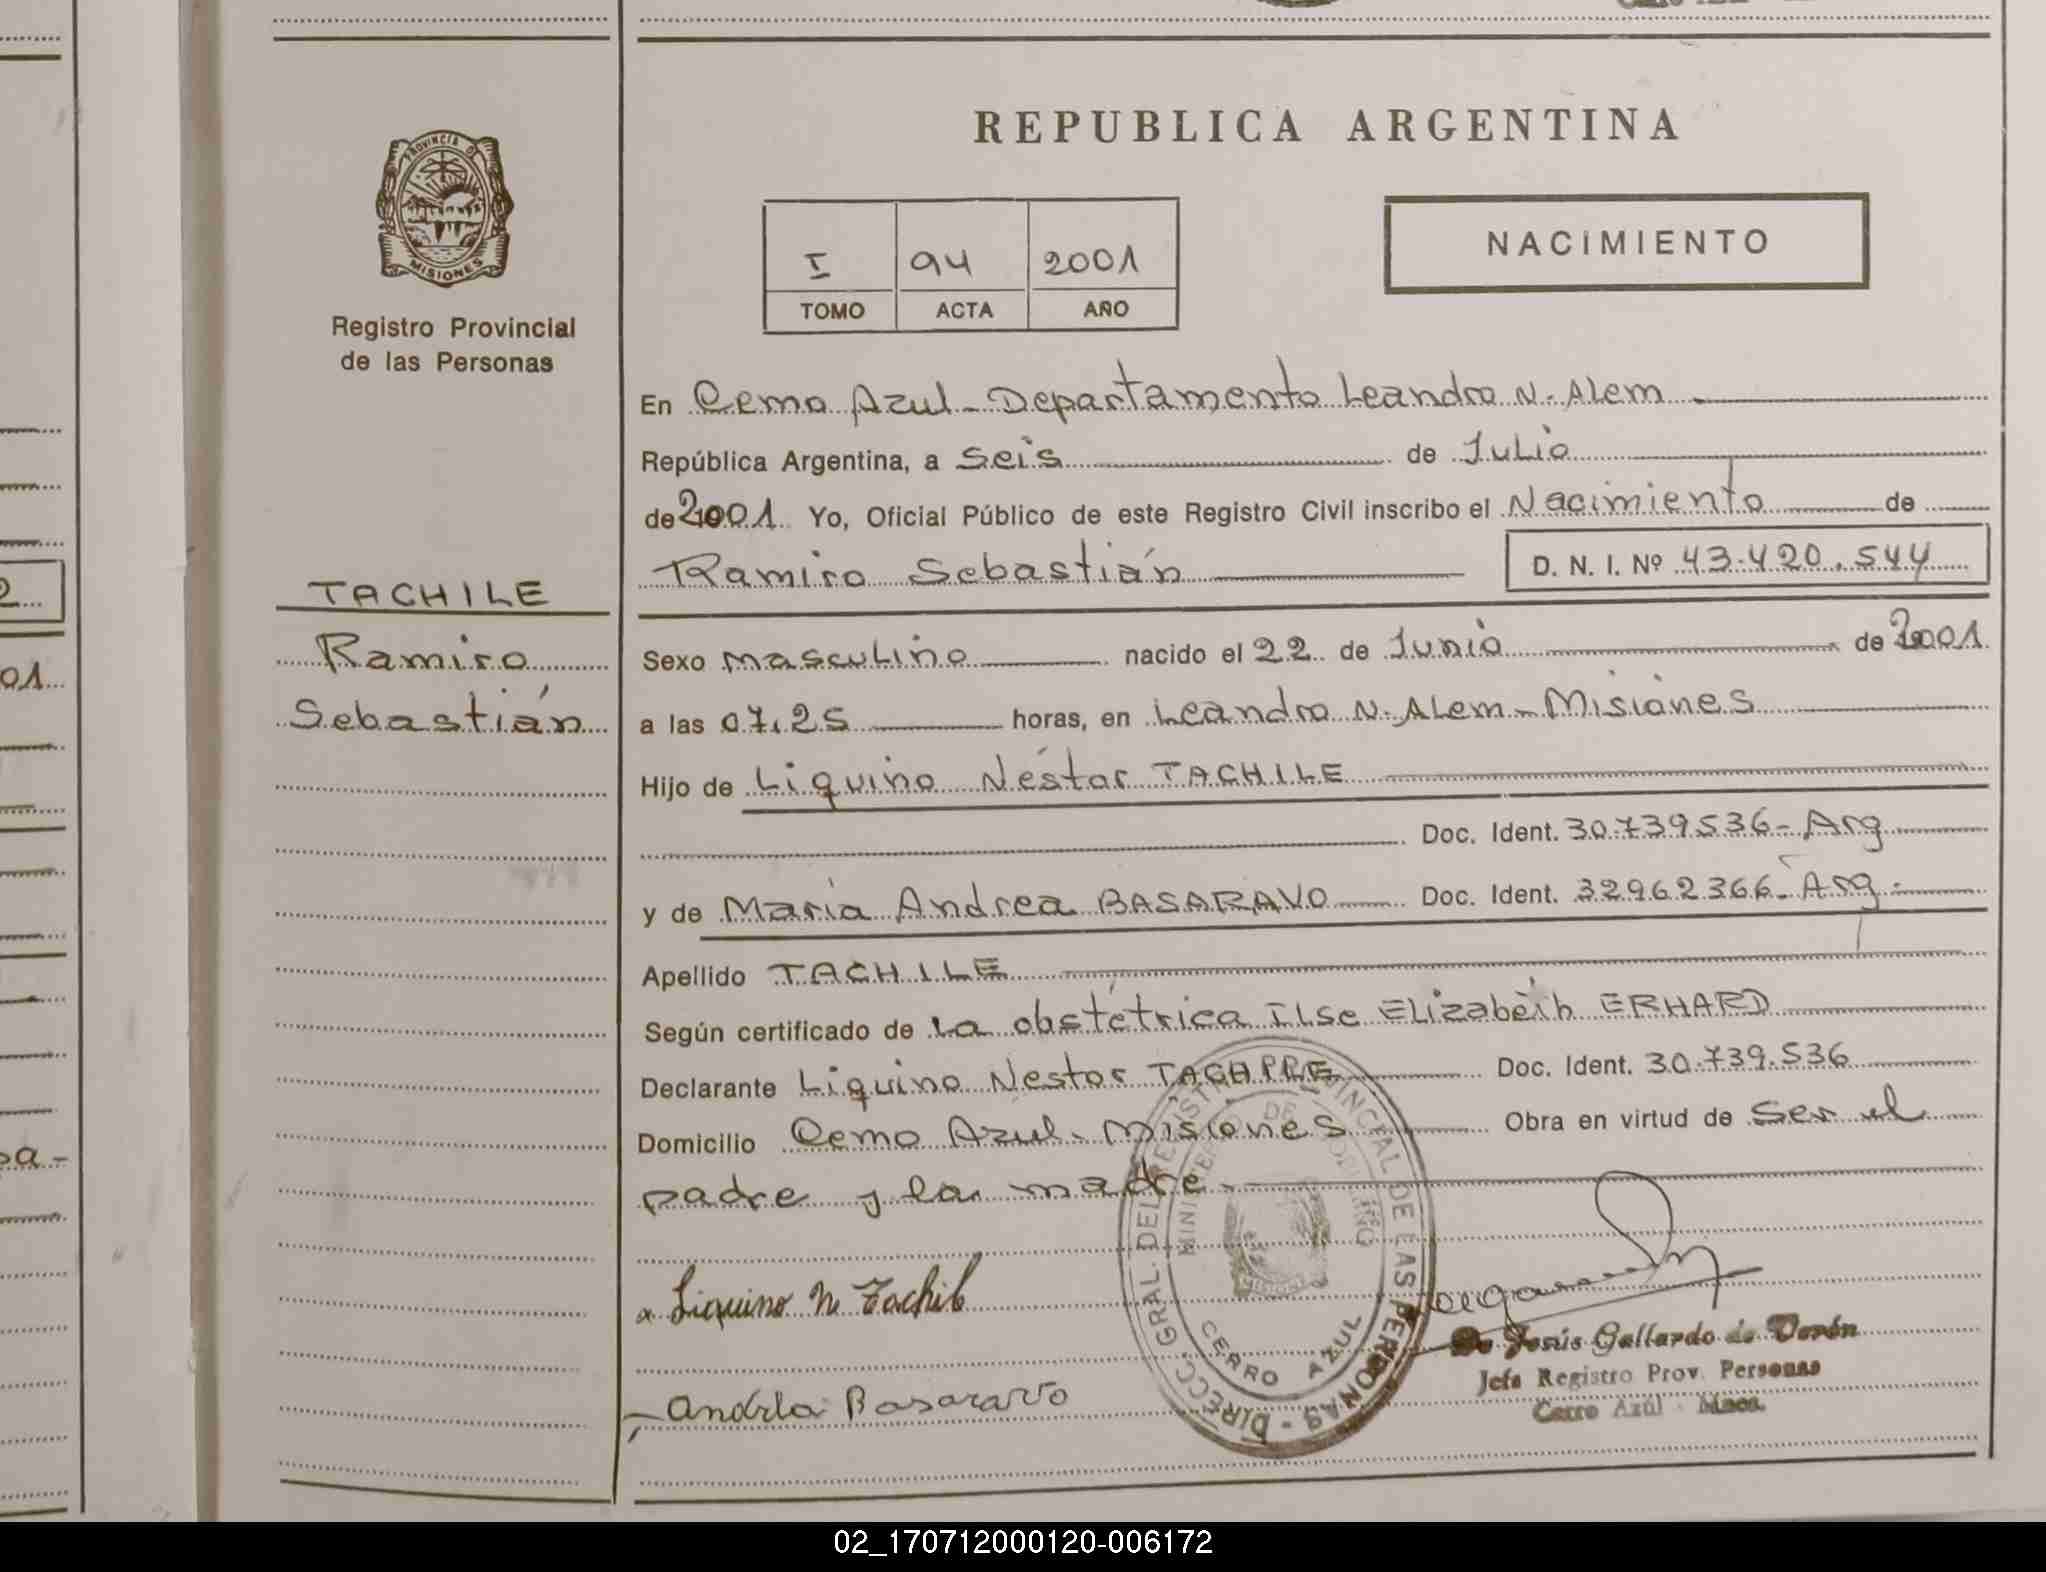 REPUBLICA ARGENTINA
PROVINCIA DE
MISIONES
Registro Provincial
de las Personas
I 94 2001
TOMO ACTA AÑO
NACIMIENTO
En Cerro Azul - Departamento Leandro N. Alem
República Argentina, a Seis de Julio
de 2001 Yo, Oficial Público de este Registro Civil inscribo el Nacimiento de
Ramiro Sebastián D. N. I. Nº 43.420.544
TACHILE
Ramiro
Sebastián
Sexo masculino nacido el 22 de Junio de 2001
a las 07.25 horas, en Leandro N. Alem - Misiones
Hijo de Liquino Néstor TACHILE
Doc. Ident. 30.739.536 - Arg
y de María Andrea BASARAVO Doc. Ident. 32962366 - Arg -
Apellido TACHILE
Según certificado de la obstétrica Ilse Elizabeth ERHARD
Declarante Liquino Nestor Doc. Ident. 30.739.536
Domicilio Cerro Azul - Misiones Obra en virtud de Ser el
padre y la madre
Liquino N Tachile
Andrea Basaravo
DIRECC. GRAL. DEL REGISTRO PROVINCIAL DE LAS PERSONAS
CERRO AZUL
Jesús Gallardo de Verón
Jefe Registro Prov. Personas
Cerro Azúl - Mnes.
01
02_170712000120-006172